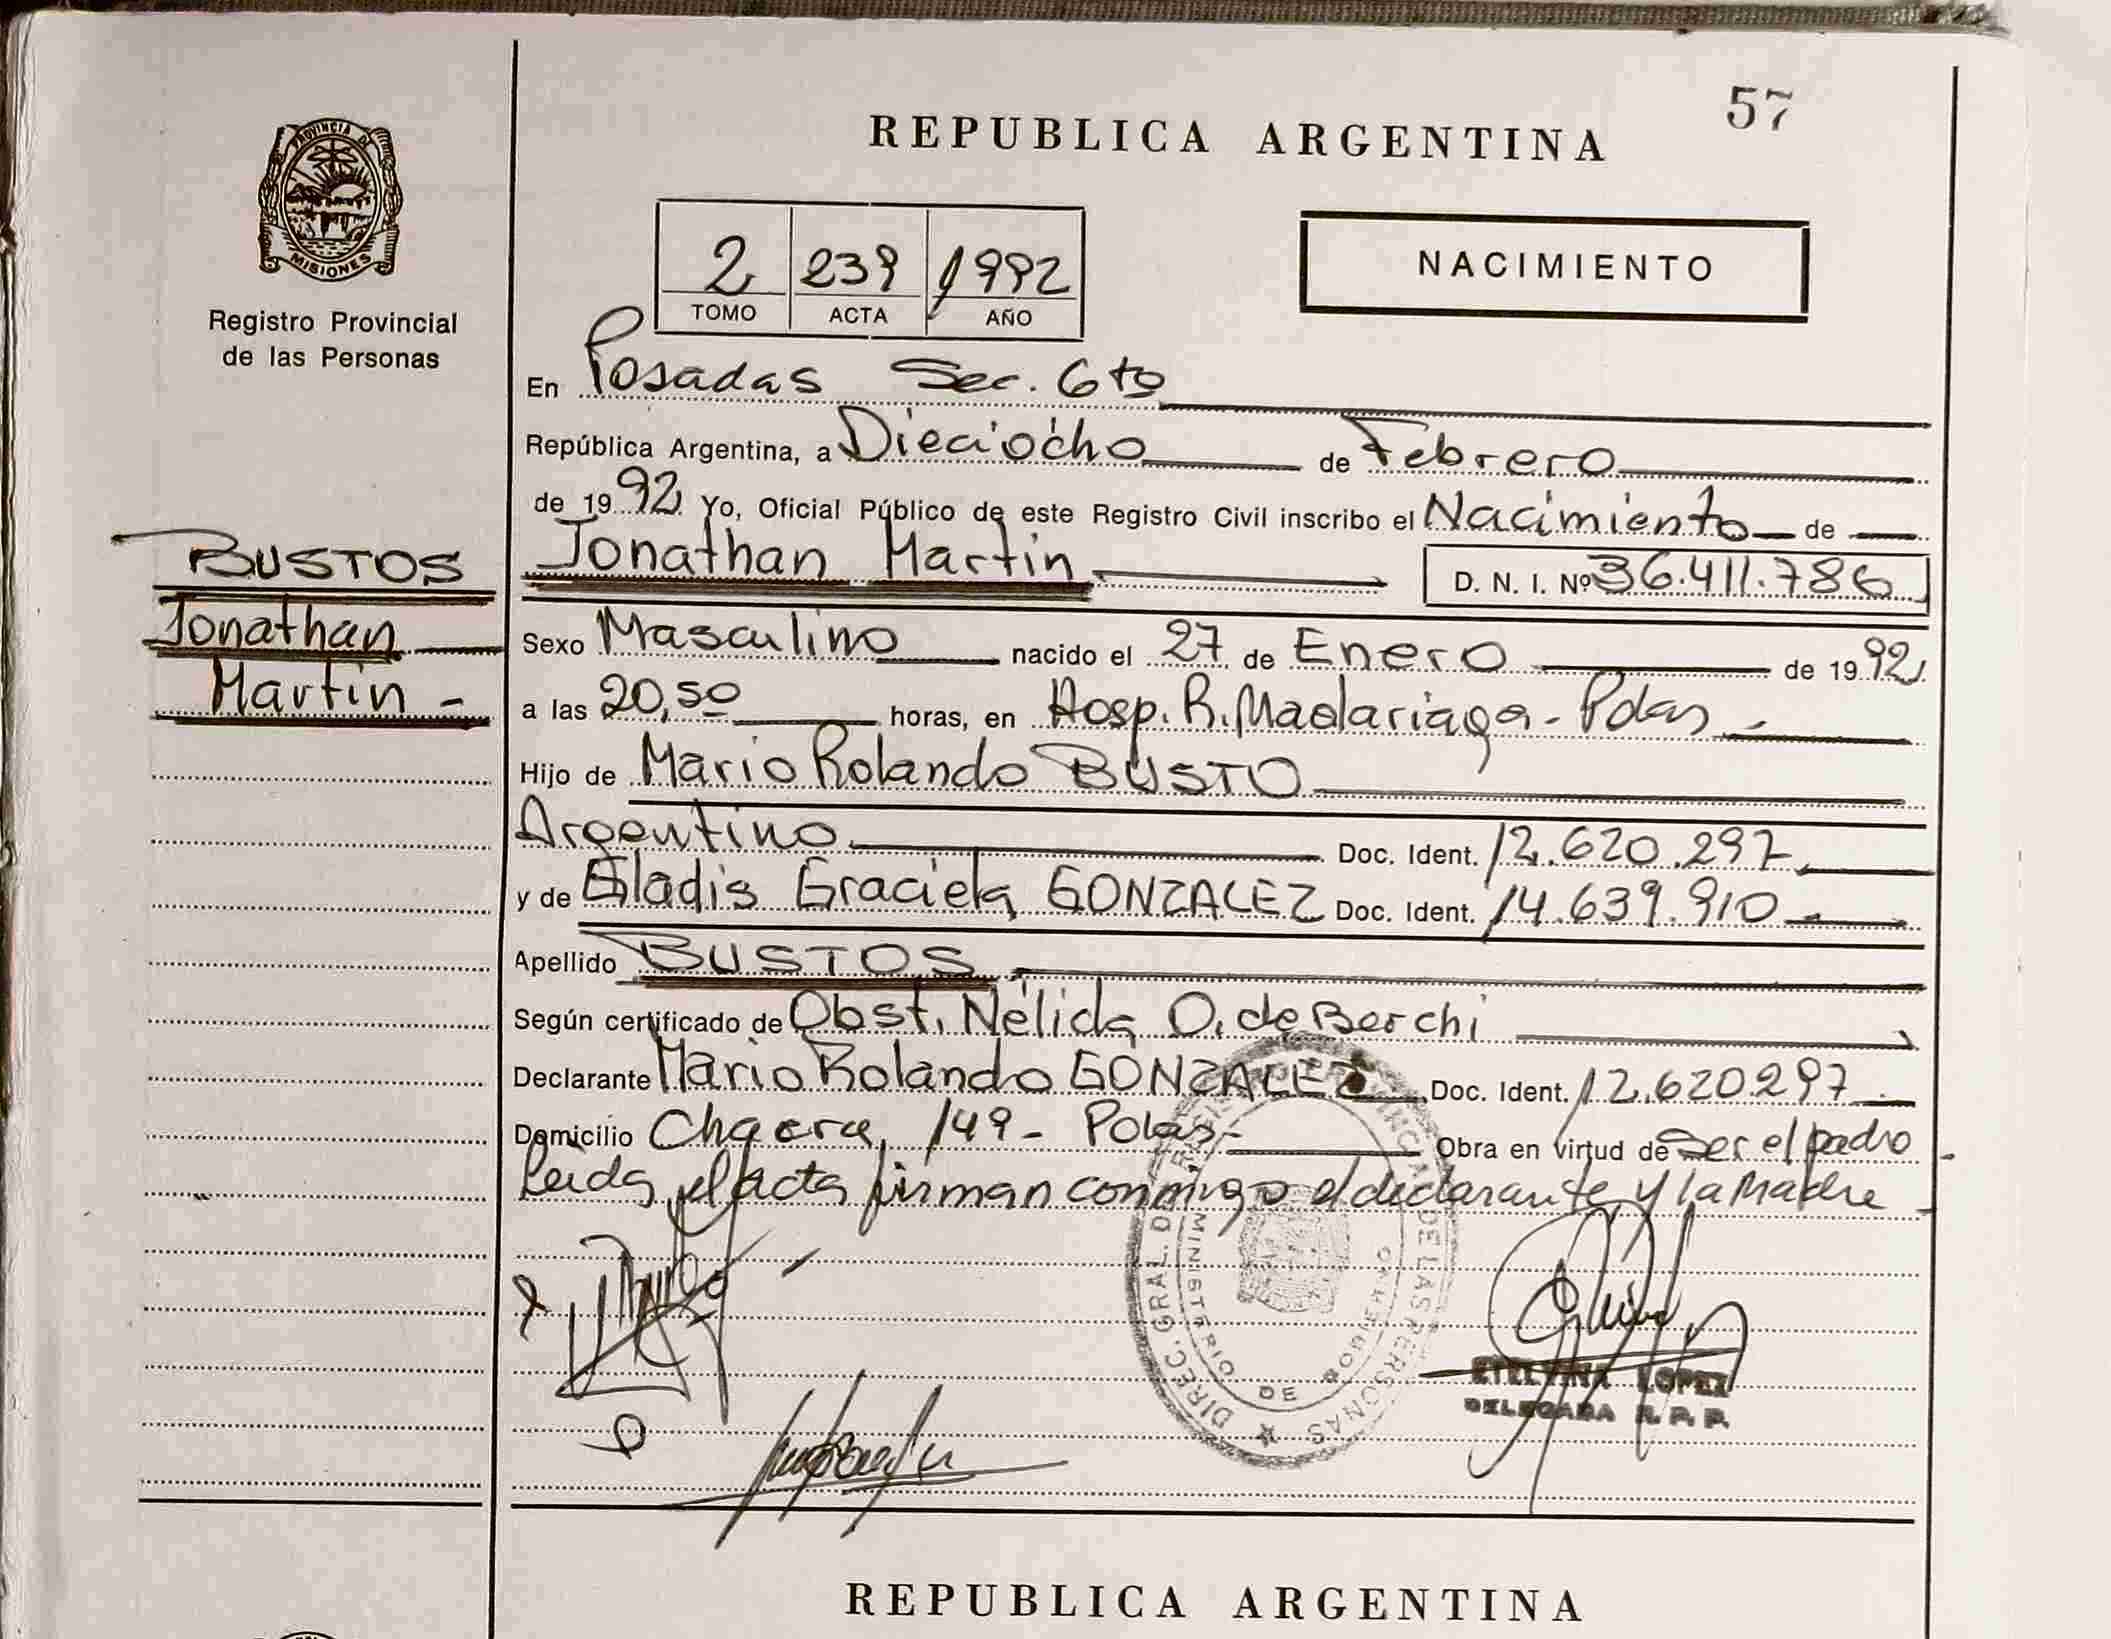 57
REPUBLICA ARGENTINA
PROVINCIA DE
MISIONES
Registro Provincial
de las Personas
2 239 1992
TOMO ACTA AÑO
NACIMIENTO
En Posadas Sec. 6to
República Argentina, a Dieciocho de Febrero
de 1992 Yo, Oficial Público de este Registro Civil inscribo el Nacimiento de
BUSTOS
Jonathan
Martin
Jonathan Martin D. N. I. Nº 36.411.786
Sexo Masculino nacido el 27 de Enero de 1992
a las 20,50 horas, en Hosp. R. Madariaga - Pdas
Hijo de Mario Rolando BUSTO
Argentino Doc. Ident. 12.620.297
y de Gladis Graciela GONZALEZ Doc. Ident. 14.639.910
Apellido BUSTOS
Según certificado de Obst. Nélida O. de Berchi
Declarante Mario Rolando GONZALEZ Doc. Ident. 12.620.297
Domicilio Chacra 149 - Pdas - Obra en virtud de Ser el padre
Leida el acta firman conmigo el declarante y la Madre
DIREC. GRAL. DE LAS PERSONAS
MINISTERIO DE GOBIERNO
ETELVINA LOPEZ
DELEGADA R. P. P.
REPUBLICA ARGENTINA